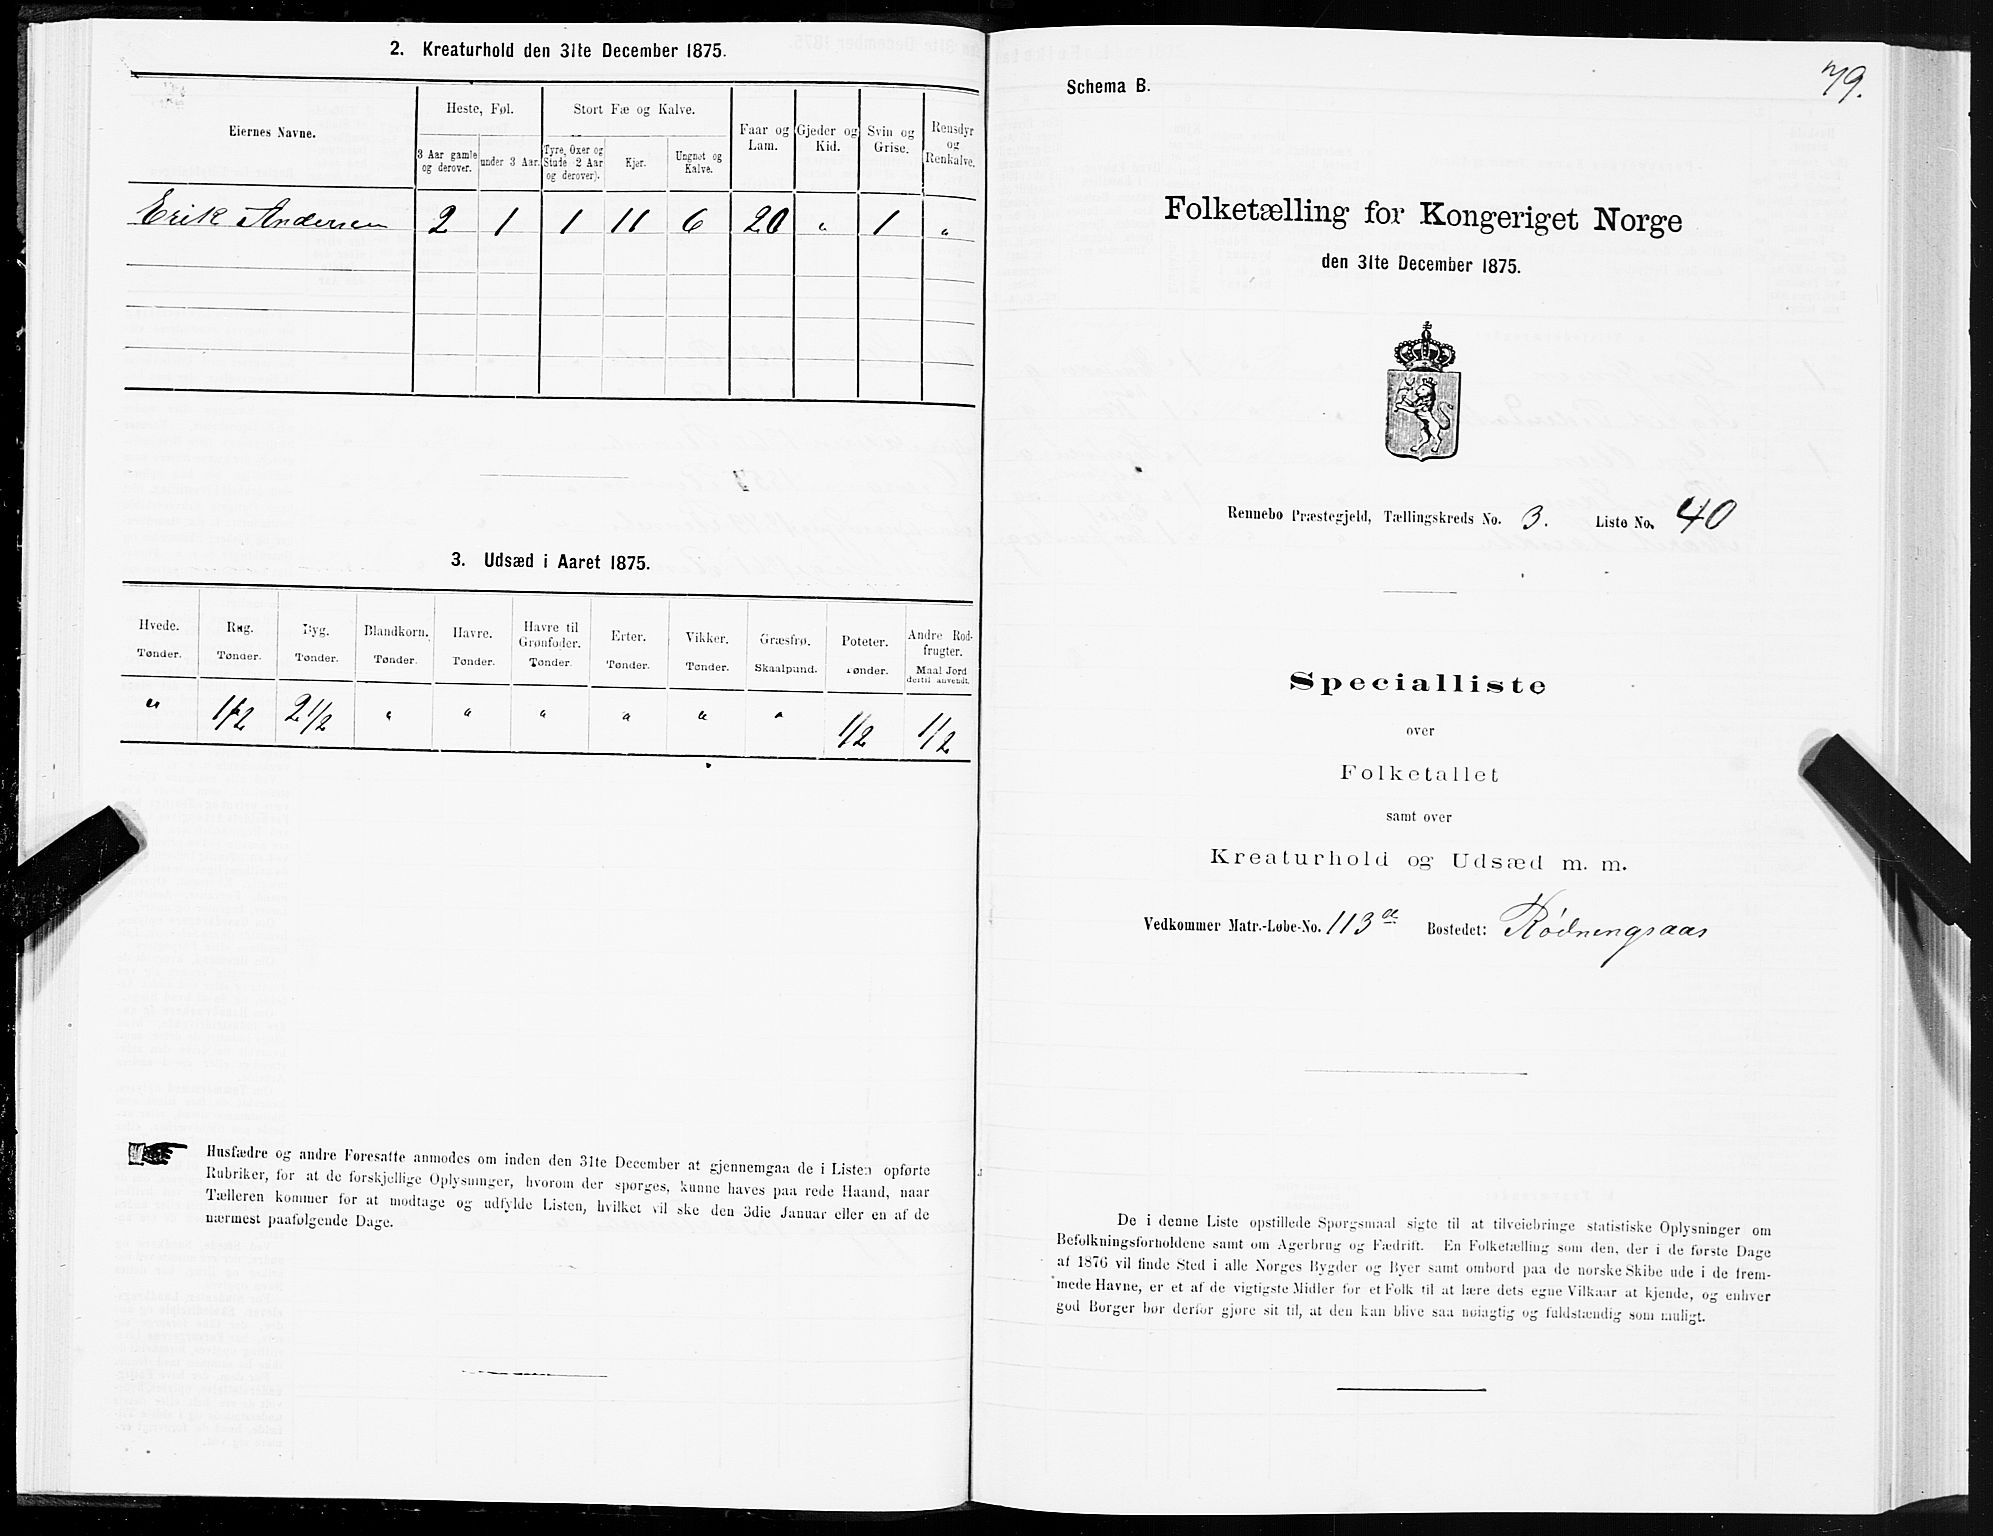 2. Kreaturhold den 31te December 1875.
Eiernes Navne.
Heste, Føl.
Stort Fæ og Kalve.
Faar og Lam.
Gjeder og Kid.
Svin og Grise.
Rensdyr og Renkalve.
3 Aar gamle og derover.
under 3 Aar.
Tyre, Oxer og Stude 2 Aar og derover).
Kjør.
Ungnøt og Kalve.
Erik Andersen 2 1 1 11 6 20 " 1 "
3. Udsæd i Aaret 1875.
Hvede. Rug. Byg. Blandkorn. Havre. Havre til Grønfoder. Erter. Vikker. Græsfrø. Poteter. Andre Rodfrugter.
Tønder. Tønder. Tønder. Tønder. Tønder. Tønder. Tønder. Tønder. Skaalpund. Tønder. Maal Jord dertil anvendt.
" 1/2 2 1/2 " " " " " " 1/2 1/2
Husfædre og andre Foresatte anmodes om inden den 31te December at gjennemgaa de i Listen opførte
Rubriker, for at de forskjellige Oplysninger, hvorom der spørges, kunne haves paa rede Haand, naar
Tælleren kommer for at modtage og udfylde Listen, hvilket vil ske den 3die Januar eller en af de
nærmest paafølgende Dage.
79.
Schema B.
Folketælling for Kongeriget Norge
den 31te December 1875.
Rennebo Præstegjeld, Tællingskreds No. 3. Liste No. 40
Specialliste
over
Folketallet
samt over
Kreaturhold og Udsæd m. m.
Vedkommer Matr.-Løbe-No. 113a Bostedet: Rødningsaas
De i denne Liste opstillede Spørgsmaal sigte til at tilveiebringe statistiske Oplysninger om
Befolkningsforholdene samt om Agerbrug og Fædrift. En Folketælling som den, der i de første Dage
af 1876 vil finde Sted i alle Norges Bygder og Byer samt ombord paa de norske Skibe ude i de frem-
mede Havne, er et af de vigtigste Midler for et Folk til at lære dets egne Vilkaar at kjende, og enhver
god Borger bør derfor gjøre sit til, at den kan blive saa nøiagtig og fuldstændig som muligt.